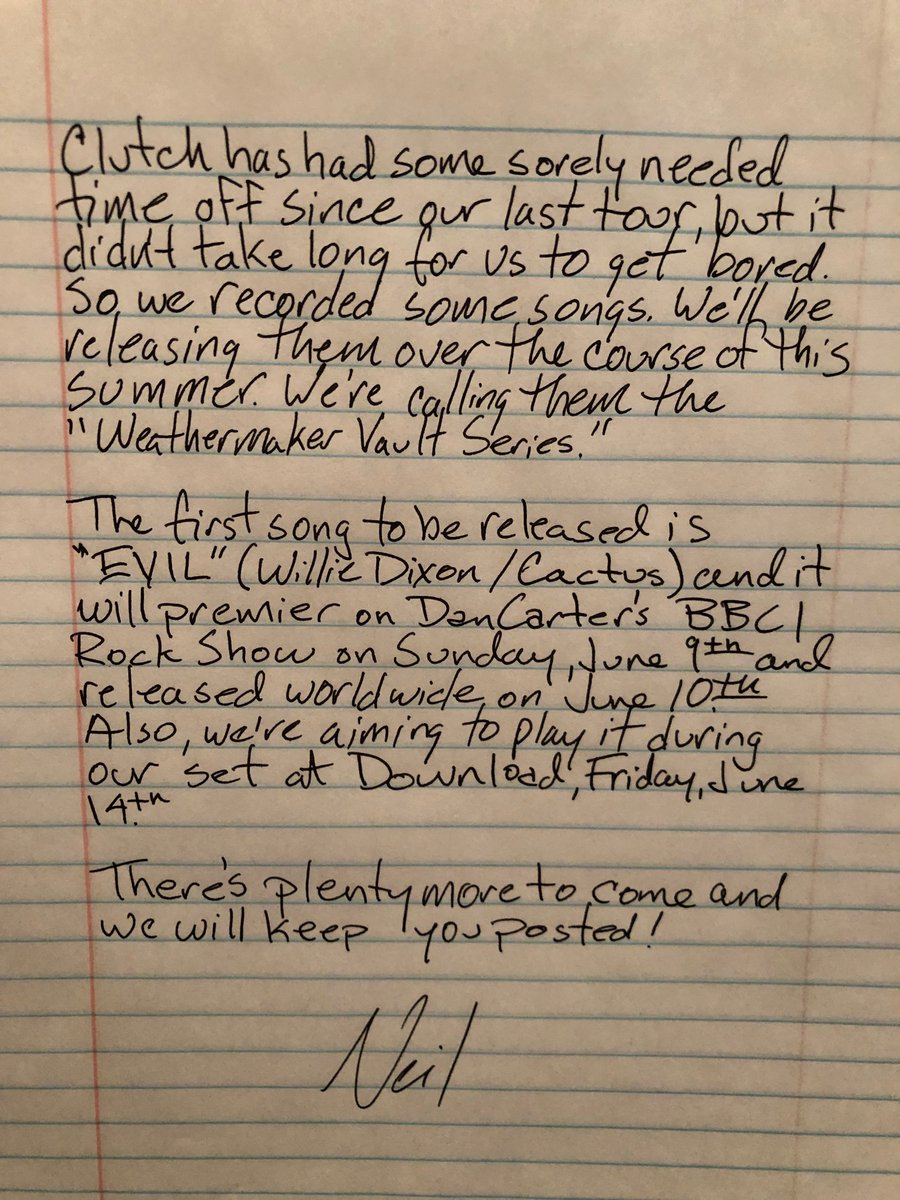 Clutch has had some sorely needed
time off since our last tour, but it
didn't take long for us to get bored.
So we recorded some songs. We'll be
releasing them over the course of this
summer. We're calling them the
"Weathermaker Vault Series."
The first song to be released is
"EVIL" (Willie Dixon/Cactus) and it
will premier on Dan Carter's BBC1
Rock Show on Sunday, June 9th and
released worldwide on June 10th.
Also, we're aiming to play it during
our set at Download, Friday, June
14th.
There's plenty more to come and
we will keep you posted!
Neil